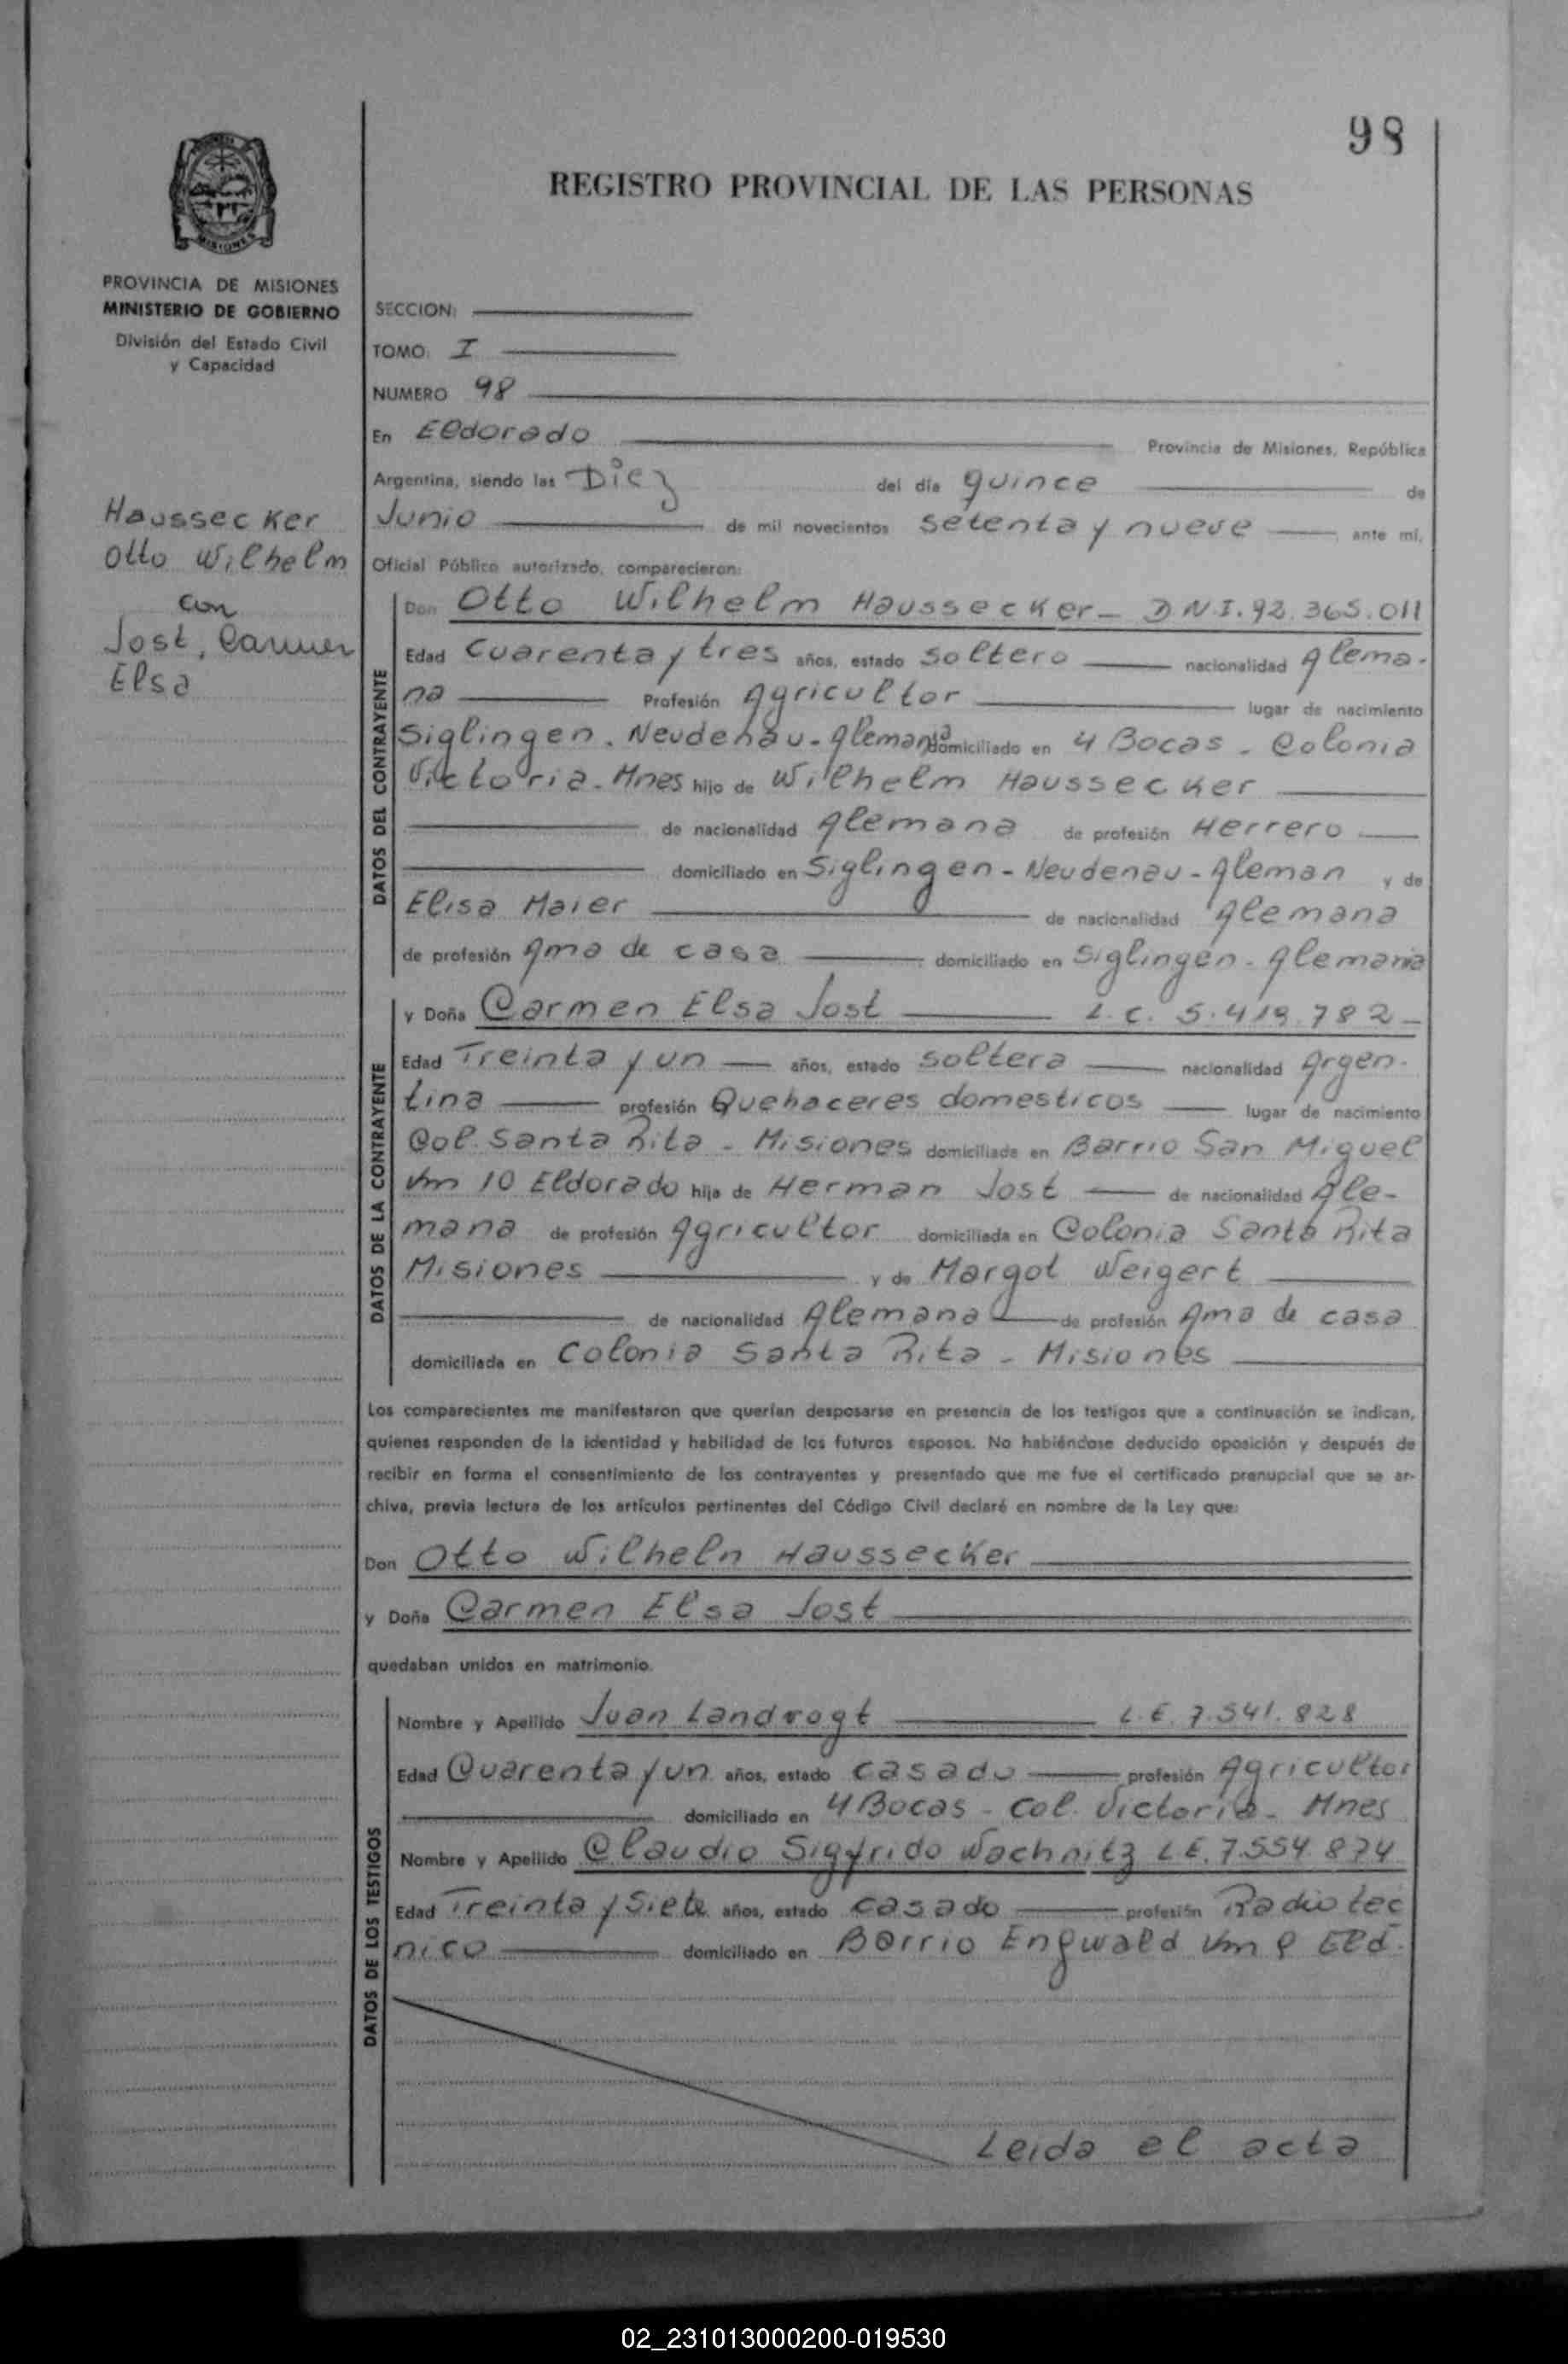 98
REGISTRO PROVINCIAL DE LAS PERSONAS
MISIONES
PROVINCIA DE MISIONES
MINISTERIO DE GOBIERNO
División del Estado Civil
y Capacidad
Haussecker
Otto Wilhelm
con
Jost, Carmen
Elsa
SECCION:
TOMO: I
NUMERO 98
En Eldorado Provincia de Misiones, República
Argentina, siendo las Diez del día quince de
Junio de mil novecientos setenta y nueve ante mí,
Oficial Público autorizado, comparecieron:
DATOS DEL CONTRAYENTE
Don Otto Wilhelm Haussecker - D N.I. 92.365.011
Edad Cuarenta y tres años, estado soltero nacionalidad Alema-
na Profesión Agricultor lugar de nacimiento
Siglingen. Neudenau - Alemania domiciliado en 4 Bocas - Colonia
Victoria - Mnes hijo de Wilhelm Haussecker
de nacionalidad Alemana de profesión Herrero
domiciliado en Siglingen - Neudenau - Aleman y de
Elisa Maier de nacionalidad Alemana
de profesión Ama de casa domiciliado en Siglingen - Alemania
DATOS DE LA CONTRAYENTE
y Doña Carmen Elsa Jost L. C. 5.419.782 -
Edad Treinta y un años, estado soltera nacionalidad Argen-
tina profesión Quehaceres domesticos lugar de nacimiento
Col. Santa Rita - Misiones domiciliada en Barrio San Miguel
Km 10 Eldorado hija de Herman Jost de nacionalidad Ale-
mana de profesión Agricultor domiciliada en Colonia Santa Rita
Misiones y de Margot Weigert
de nacionalidad Alemana de profesión Ama de casa
domiciliada en Colonia Santa Rita - Misiones
Los comparecientes me manifestaron que querían desposarse en presencia de los testigos que a continuación se indican,
quienes responden de la identidad y habilidad de los futuros esposos. No habiéndose deducido oposición y después de
recibir en forma el consentimiento de los contrayentes y presentado que me fue el certificado prenupcial que se ar-
chiva, previa lectura de los artículos pertinentes del Código Civil declaré en nombre de la Ley que:
Don Otto Wilheln Haussecker
y Doña Carmen Elsa Jost
quedaban unidos en matrimonio.
DATOS DE LOS TESTIGOS
Nombre y Apellido Juan Landvogt L.E. 7.541.828
Edad Cuarenta y un años, estado casado profesión Agricultor
domiciliado en 4 Bocas - Col. Victoria - Mnes
Nombre y Apellido Claudio Sigfrido Wachnitz L.E. 7.554.874
Edad Treinta y Siete años, estado casado profesión Radiotec
nico domiciliado en Barrio Engwald Km 9 Eld.
Leida el acta
02_231013000200-019530